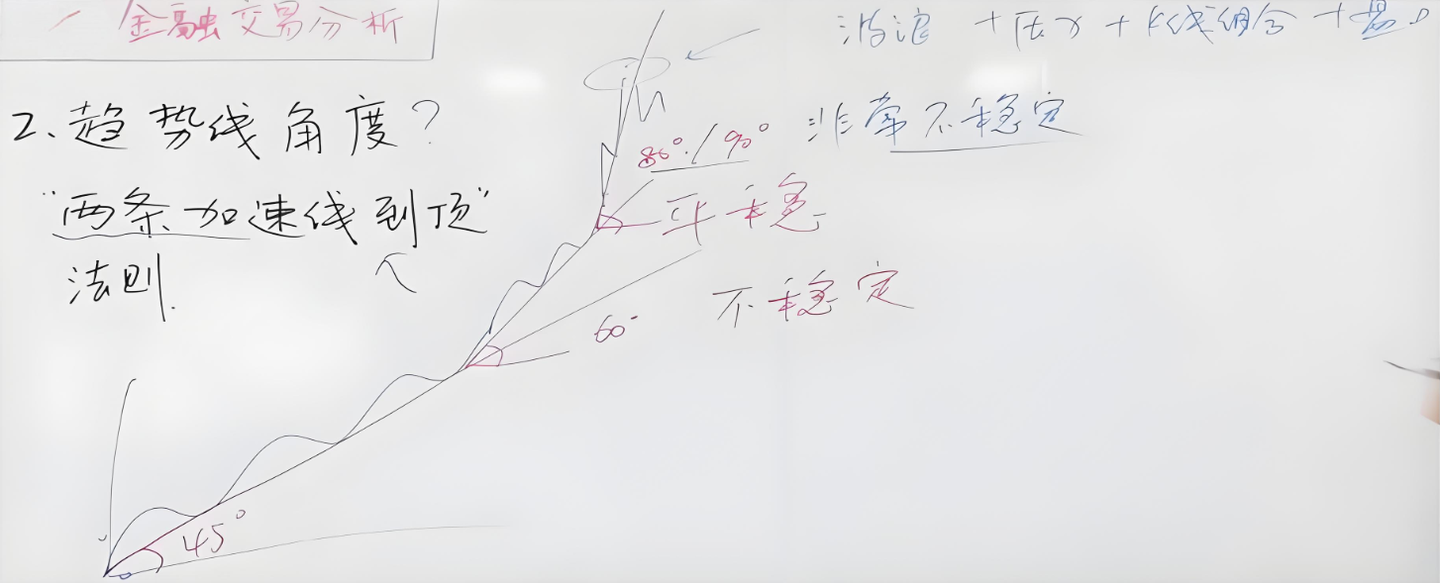 金融交易分析
波浪 + 压力 + K线组合 +
2、趋势线角度?
80°/90° 非常不稳定
"两条加速线到顶"
法则.
平稳
60° 不稳定
45°